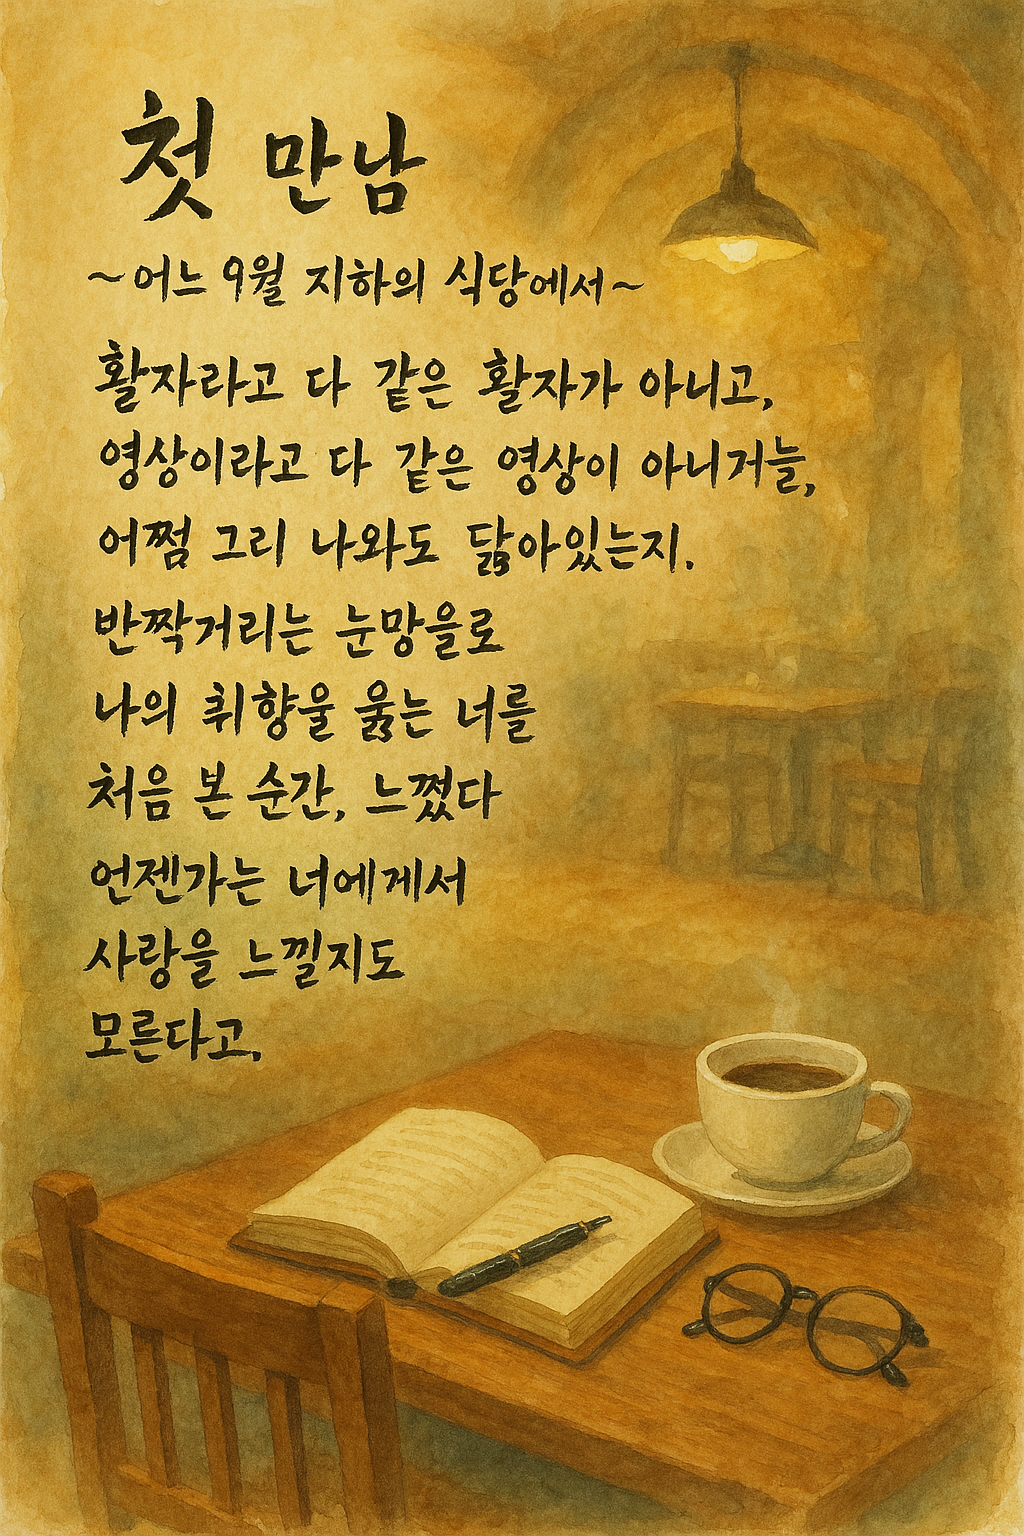 첫 만남
~어느 9월 지하의 식당에서~
활자라고 다 같은 활자가 아니고,
영상이라고 다 같은 영상이 아니거늘,
어쩜 그리 나와도 닮아있는지.
반짝거리는 눈망을로
나의 취향을 읊는 너를
처음 본 순간, 느꼈다
언젠가는 너에게서
사랑을 느낄지도
모른다고,